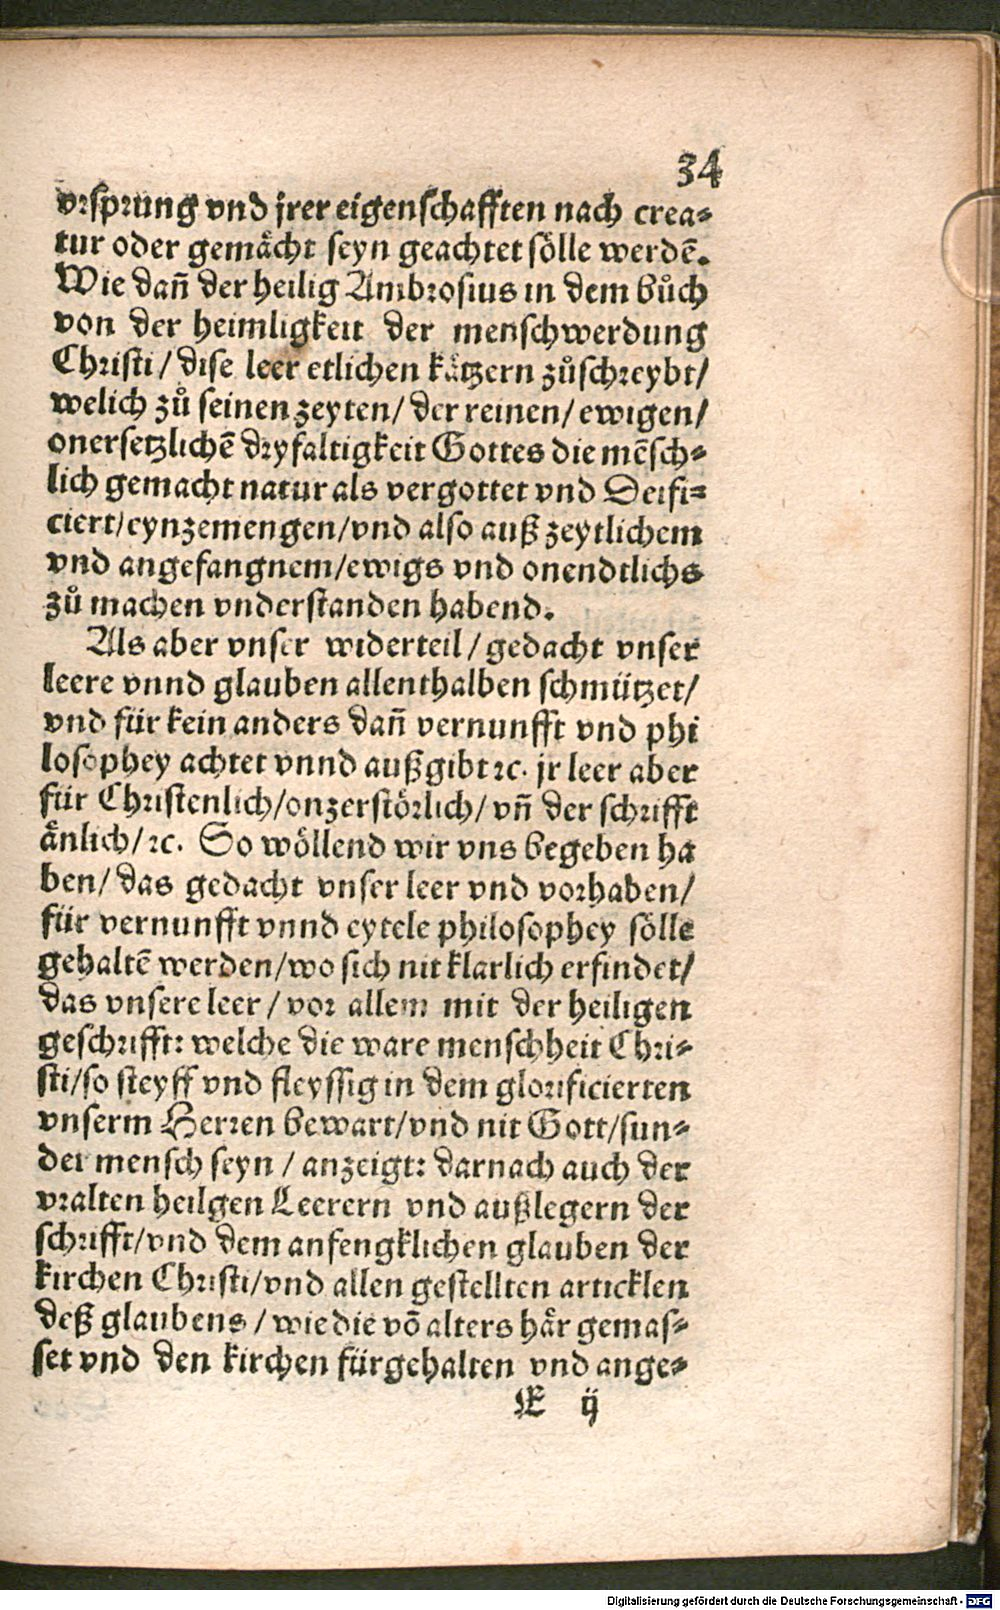 34
vrsprung vnd jrer eigenschafften nach crea⸗
tur oder gemächt seyn geachtet sölle werdē.
Wie dañ der heilig Ambrosius in dem bůch
von der heimligkeit der menschwerdung
Christi / dise leer etlichen kätzern zůschreybt/
welich zů seinen zeyten/ der reinen/ ewigen/
onersetzlichē dryfaltigkeit Gottes die mēsch⸗
lich gemacht natur als vergottet vnd Deifi⸗
ciert/eynzemengen/vnd also auß zeytlichem
vnd angefangnem/ewigs vnd onendtlichs
zů machen vnderstanden habend.
Als aber vnser widerteil / gedacht vnser
leere vnnd glauben allenthalben schmützet/
vnd für kein anders dañ vernunfft vnd phi
losophey achtet vnnd außgibt ꝛc. jr leer aber
für Christenlich/onzerstörlich/ vñ der schrifft
änlich/ ꝛc. So wöllend wir vns begeben ha
ben/ das gedacht vnser leer vnd vorhaben/
für vernunfft vnnd eytele philosophey sölle
gehaltē werden/wo sich nit klarlich erfindet/
das vnsere leer / vor allem mit der heiligen
geschrifft: welche die ware menschheit Chri⸗
sti/so steyff vnd fleyssig in dem glorificierten
vnserm Herren bewart/vnd nit Gott/sun⸗
der mensch seyn / anzeigt: darnach auch der
vralten heilgen Leerern vnd außlegern der
schrifft/vnd dem anfengklichen glauben der
kirchen Christi/vnd allen gestellten articklen
deß glaubens / wie die võ alters här gemas⸗
set vnd den kirchen fürgehalten vnd ange⸗
E ij
Digitalisierung gefördert durch die Deutsche Forschungsgemeinschaft - DFG